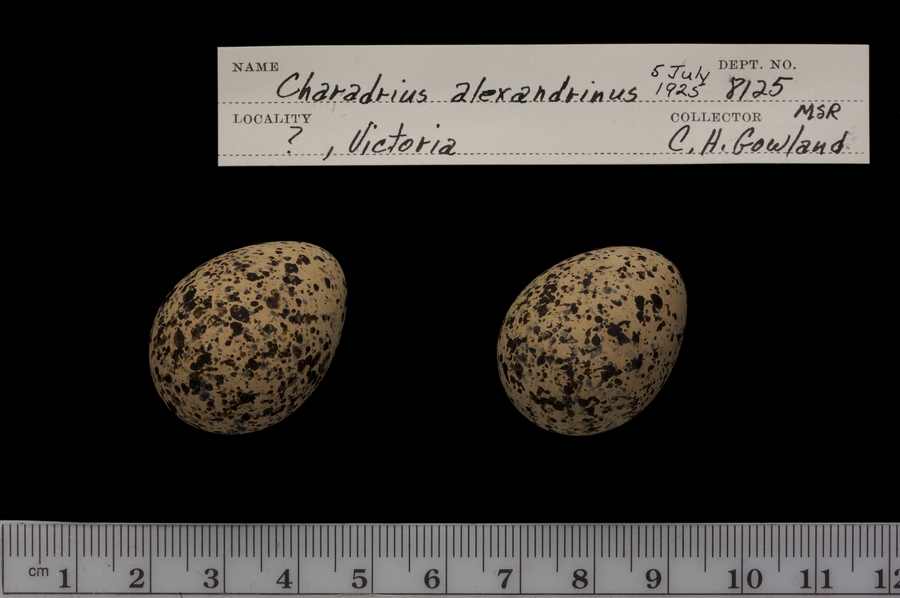 NAME Charadrius alexandrinus 5 July 1925 DEPT. NO. 8125
LOCALITY ? , Victoria COLLECTOR MSR C. H. Gowland
cm 1 2 3 4 5 6 7 8 9 10 11 12